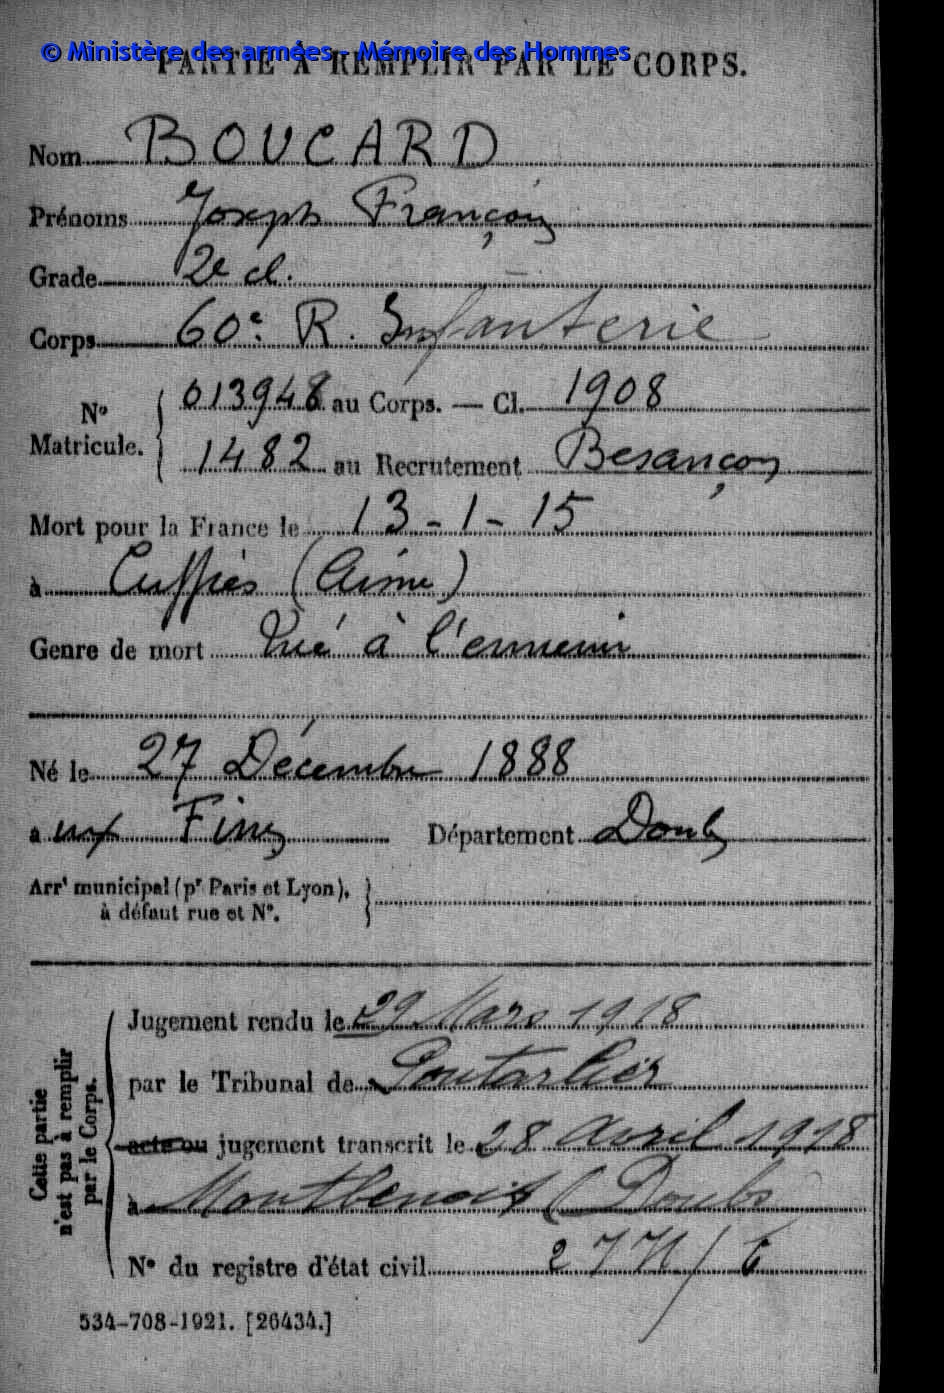 © Ministère des armées - Mémoire des Hommes
PARTIE À REMPLIR PAR LE CORPS.
Nom BOUCARD
Prénoms Joseph François
Grade 2e cl.
Corps 60e R. Infanterie
N° Matricule. 013948 au Corps. — Cl. 1908
1482 au Recrutement Besançon
Mort pour la France le 13-1-15
à Cuffies (Aisne)
Genre de mort Tué à l'ennemi
Né le 27 Décembre 1888
à Fins Département Doubs
Arrt municipal (pr Paris et Lyon), à défaut rue et N°.
Cette partie n'est pas à remplir par le Corps.
Jugement rendu le 29 Mars 1918
par le Tribunal de Pontarlier
acte ou jugement transcrit le 28 Avril 1918
à Montbenoit (Doubs
N° du registre d'état civil
534-708-1921. [26434.]